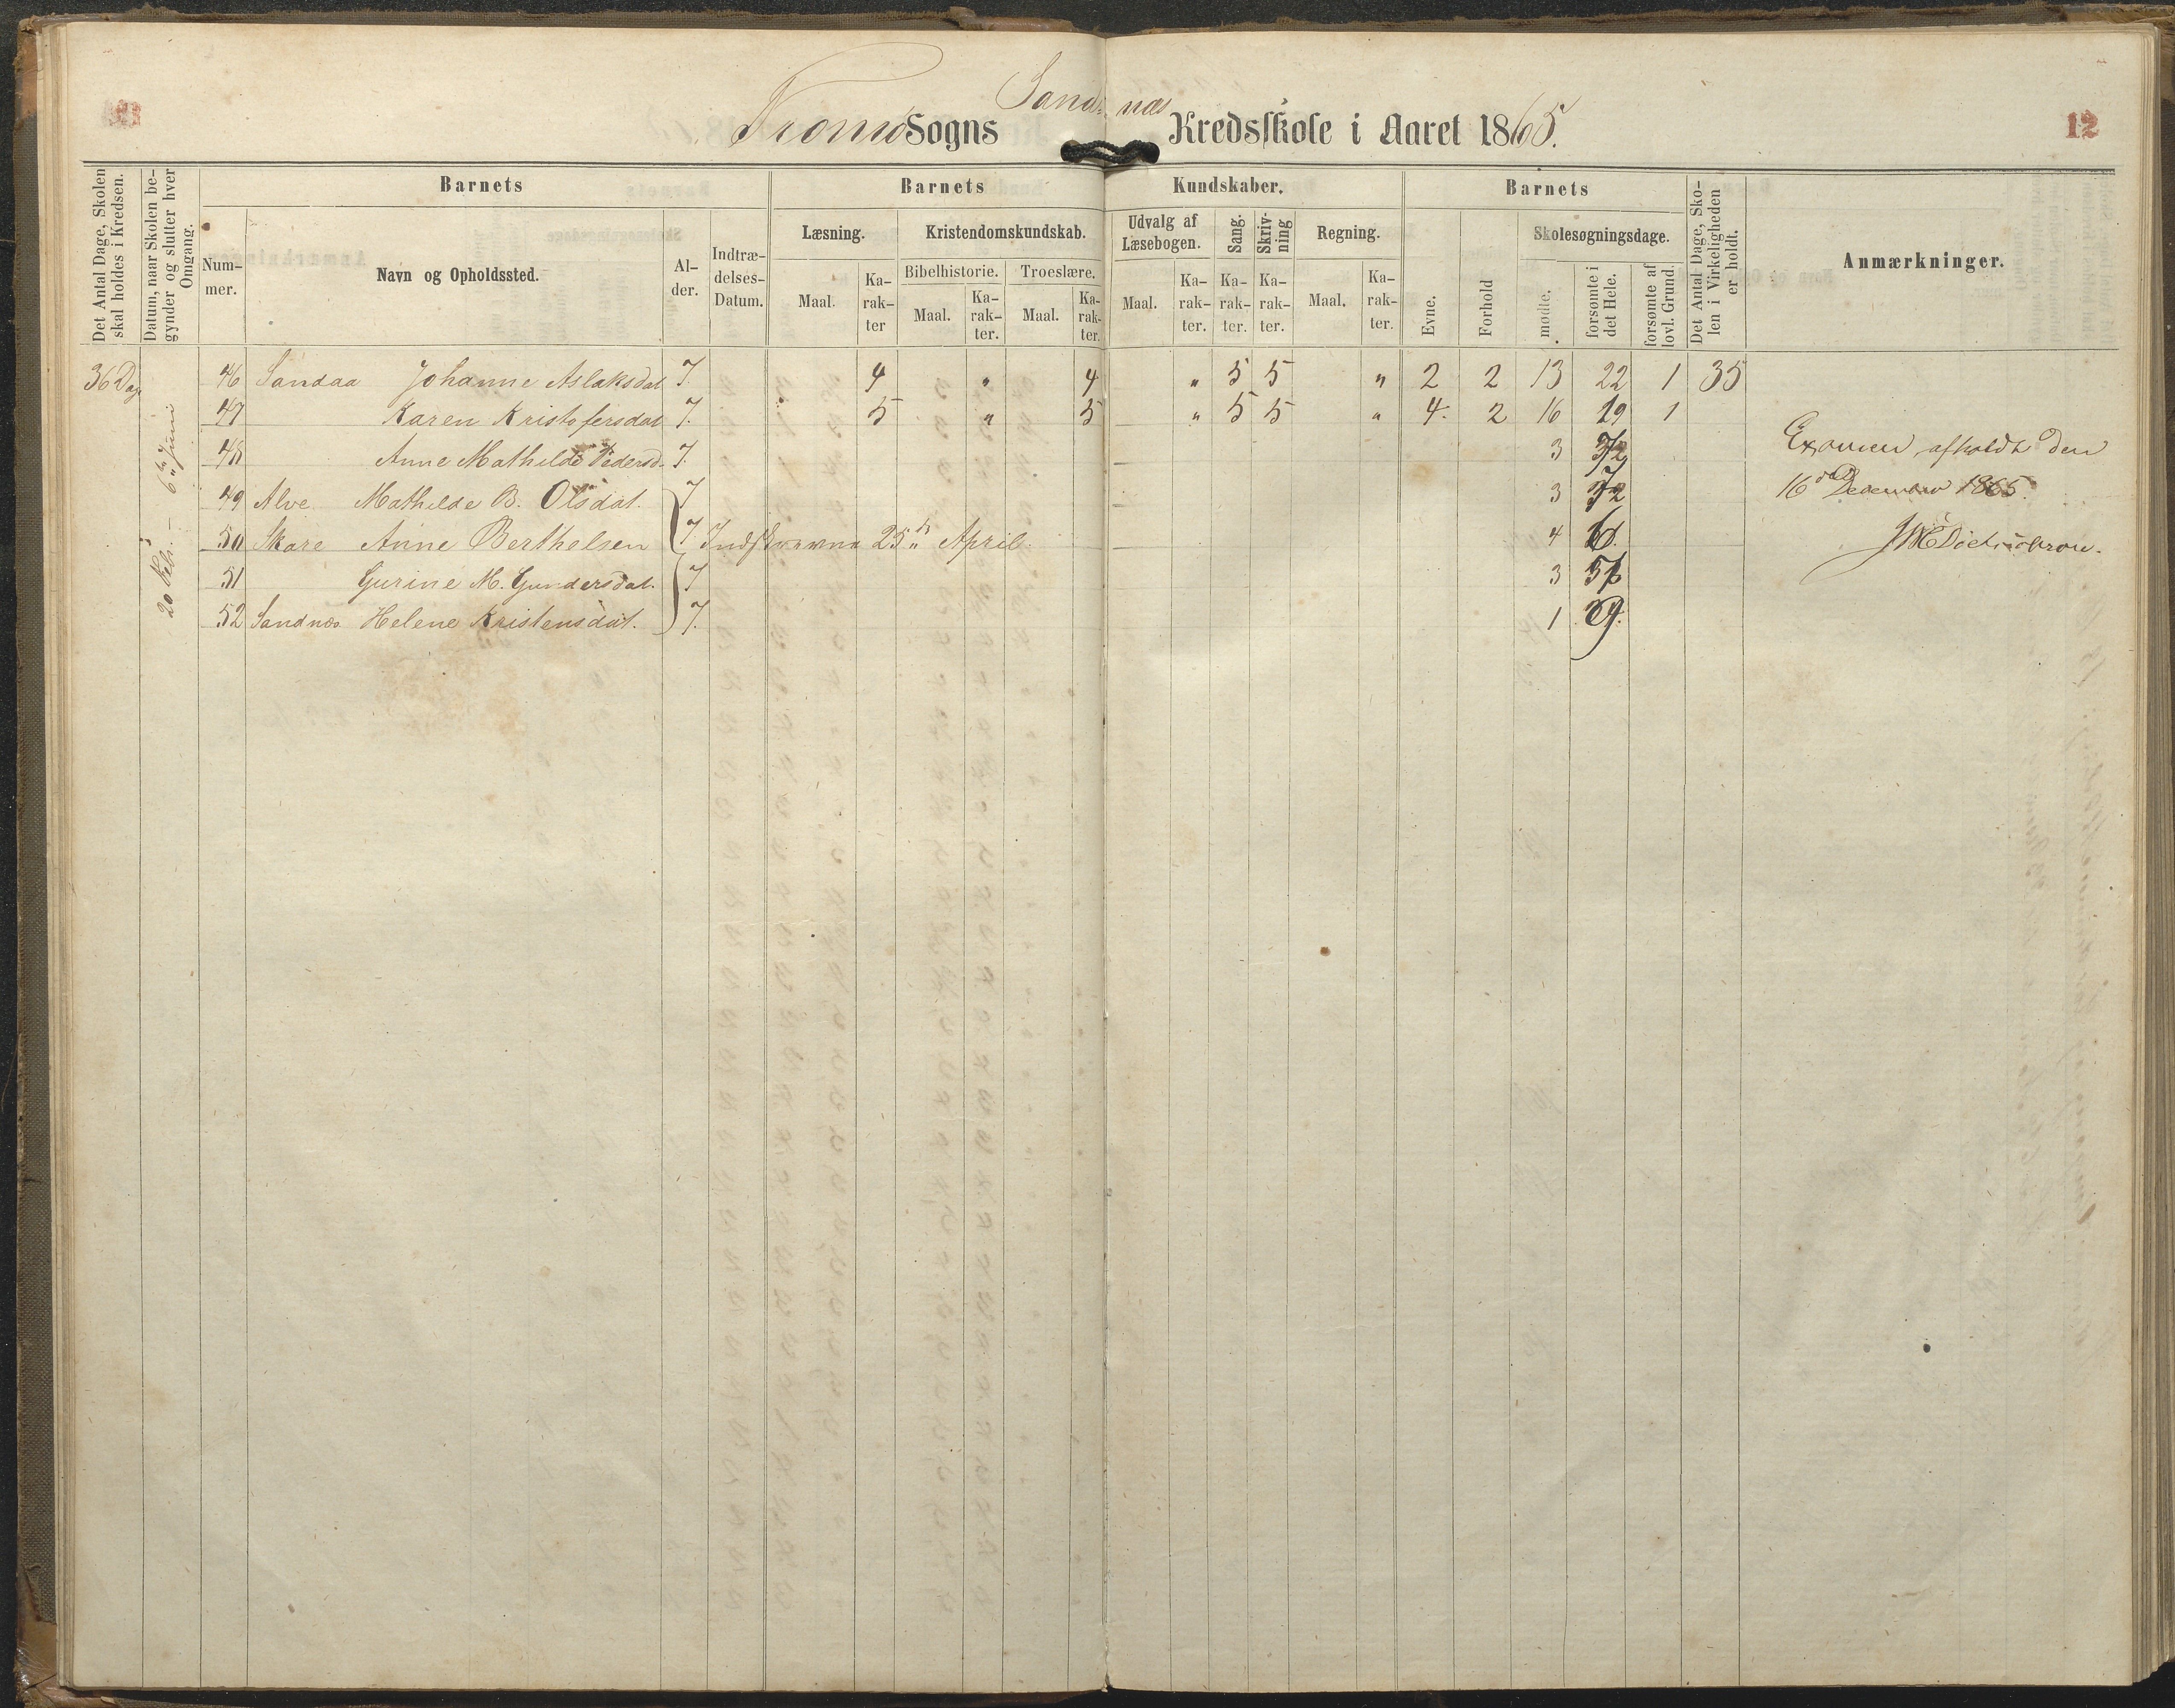 Sandnæs
Tromø Sogns Kredsskole i Aaret 1865.
12
Det Antal Dage, Skolen skal holdes i Kredsen.
Datum, naar Skolen begynder og slutter hver Omgang.
Barnets
Barnets
Kundskaber.
Barnets
Det Antal Dage, Skolen i Virkeligheden er holdt.
Anmærkninger.
Nummer.
Navn og Opholdssted.
Alder.
Indtrædelses-Datum.
Læsning.
Kristendomskundskab.
Udvalg af Læsebogen.
Sang.
Skrivning
Regning.
Evne.
Forhold
Skolesøgningsdage.
Bibelhistorie.
Troeslære.
Maal.
Karakter
Maal.
Karakter.
Maal.
Karakter.
Maal.
Karakter.
Karakter.
Karakter.
Maal.
Karakter.
mødte.
forsømte i det Hele.
forsømte af lovl. Grund.
36 Dag
20 Feb. – 6 Juni
46 Sandaa Johanne Aslaksdat 7. 4 " 4 " 5 5 " 2 2 13 22 1 35
47 Karen Kristofersdat 7. 5 " 5 " 5 5 " 4. 2 16 19 1
48 Anne Mathilde Pedersd. 7. 3
49 Alve Mathilde B. Olsdat. 7 3
50 Skare Anne Berthelsen 7. Indskrevne 25 April 4
51 Gurine M. Gundersdat. 7 3
52 Sandnæs Helene Kristensdat. 7. 1
Examen afholdt den
16 December 1865.